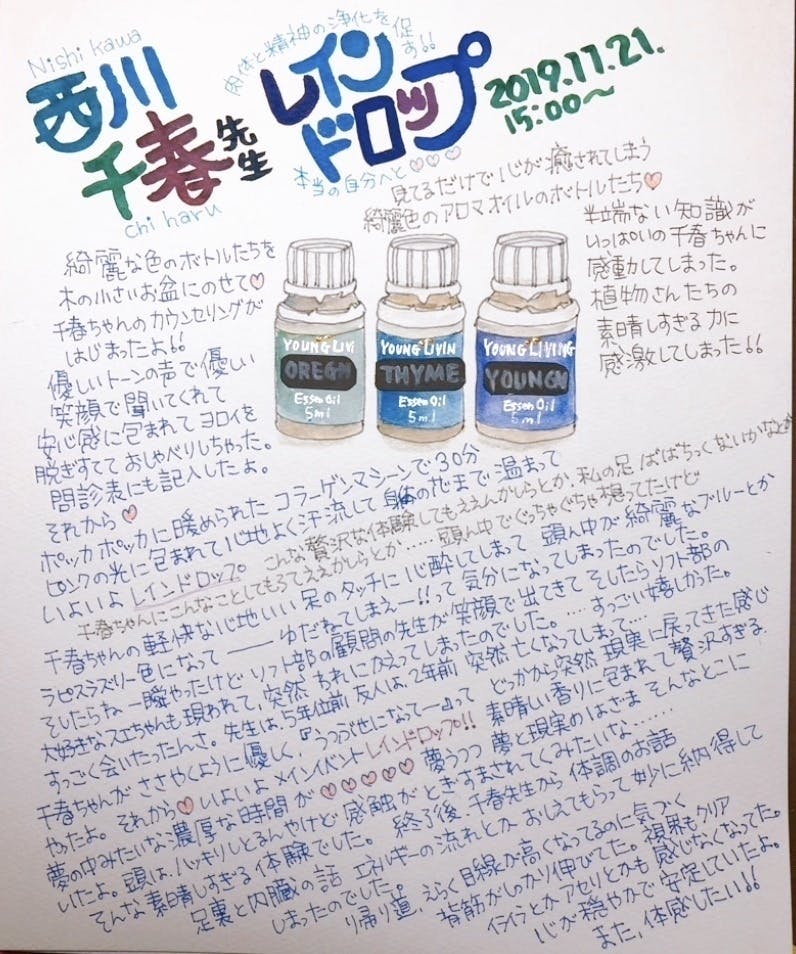 Nishi kawa
西川
千春先生
chi haru
肉体と精神の浄化を促す!!
レイン
ドロップ
本当の自分へと♡♡♡
2019.11.21.
15:00〜
見てるだけで心が癒されてしまう
綺麗色のアロマオイルのボトルたち♡
綺麗な色のボトルたちを
木の小さいお盆にのせて♡
千春ちゃんのカウンセリングが
はじまったよ!!
優しいトーンの声で優しい
笑顔で聞いてくれて
安心感に包まれてヨロイを
脱ぎすてておしゃべりしちゃった。
問診表にも記入したよ。
YOUNG LIVI
OREGN
Essen Oil
5ml
YOUNG LIVIN
THYME
Essen Oil
5ml
YOUNG LIVING
YOUNGN
Essen Oil
5ml
半端ない知識が
いっぱいの千春ちゃんに
感動してしまった。
植物さんたちの
素晴しすぎる力に
感激してしまった!!
それから♡
ポッカポッカに暖められたコラーゲンマシーンで30分
ピンクの光に包まれて心地よく汗流して身体の芯まで温まって
いよいよレインドロップ。
こんな贅沢な体験してもええんかしらとか、私の足ばばちっくないかなとか
千春ちゃんにこんなことしてもろてええかしらとか……頭ん中でぐっちゃぐちゃ想ってたけど
千春ちゃんの軽快な心地いい足のタッチに心酔してしまって頭ん中が綺麗なブルーとか
ラピスラズリー色になって――ゆだねてしまえー!!って気分になってしまったのでした。
そしたらね一瞬やったけどソフト部の顧問の先生が笑顔で出てきてそしたらソフト部の
大好きなスエちゃんも現われて、突然あれにかえってしまったのでした。……すっごい嬉しかった。
すっごく会いたったんさ。先生は、5年位前友人は、2年前突然亡くなってしまって…
千春ちゃんがささやくように優しく、『うつぶせになってー』ってどっかから突然現実に戻ってきた感じ
やったよ。それから♡いよいよメインイベントレインドロップ!!素晴しい香りに包まれて贅沢すぎる
夢の中みたいな濃厚な時間が♡♡♡♡♡夢うつつ夢と現実のはざまそんなとこに
いたよ。頭は、ハッキリしとるんやけど感触がとぎすまされてくみたいな……
そんな素晴しすぎる体験でした。終了後、千春先生から体調のお話
足裏と内臓の話エネルギーの流れとかおしえてもらって妙に納得して
しまったのでした。
帰り道、えらく目線が高くなってるのに気づく
背筋がしっかり伸びてた。視界もクリア
イライラとかアセリとかも感じなくなってた。
心が穏やかで安定していたよ。
また、体感したい!!